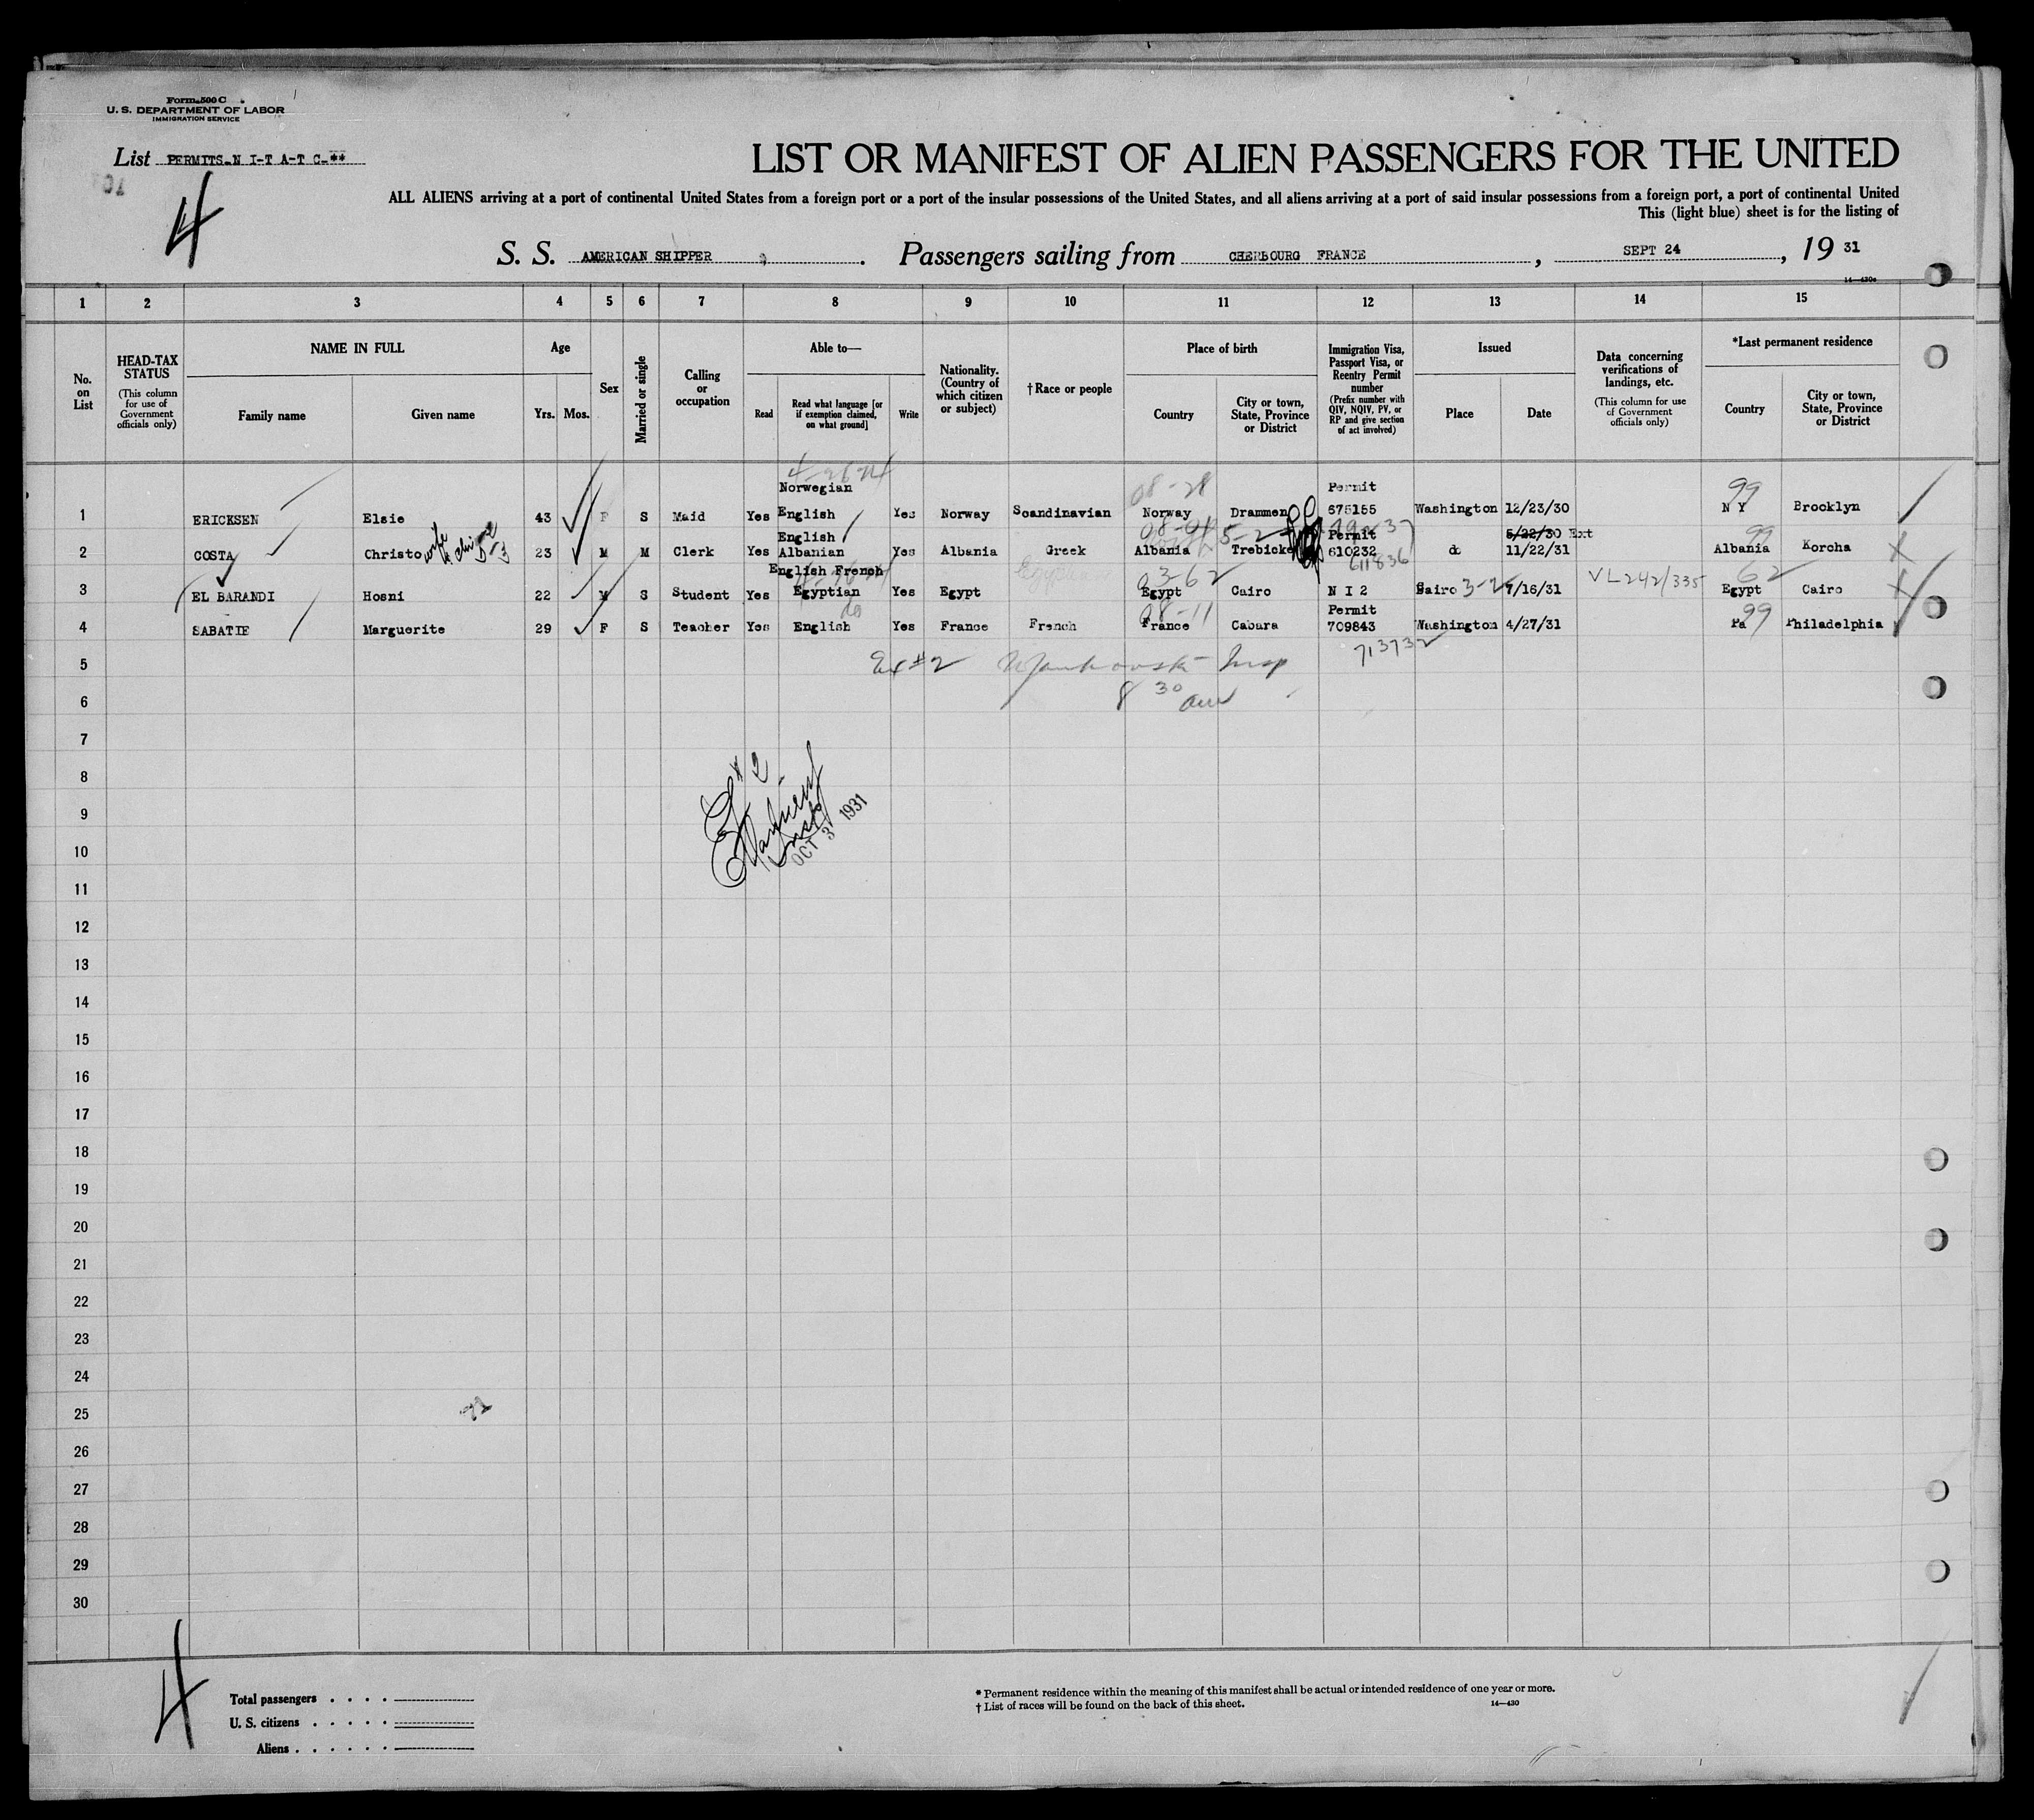 Form 500 C
U. S. DEPARTMENT OF LABOR
IMMIGRATION SERVICE
List PERMITS-N I-T A-T C-**
4
LIST OR MANIFEST OF ALIEN PASSENGERS FOR THE UNITED
ALL ALIENS arriving at a port of continental United States from a foreign port or a port of the insular possessions of the United States, and all aliens arriving at a port of said insular possessions from a foreign port, a port of continental United
This (light blue) sheet is for the listing of
S. S. AMERICAN SHIPPER . Passengers sailing from CHERBOURG FRANCE , SEPT 24 , 19 31
14-430c
1 2 3 4 5 6 7 8 9 10 11 12 13 14 15
No. on List
HEAD-TAX STATUS (This column for use of Government officials only)
NAME IN FULL Family name Given name
Age Yrs. Mos.
Sex
Married or single
Calling or occupation
Able to— Read Read what language [or if exemption claimed, on what ground] Write
Nationality. (Country of which citizen or subject)
†Race or people
Place of birth Country City or town, State, Province or District
Immigration Visa, Passport Visa, or Reentry Permit number (Prefix number with QIV, NQIV, PV, or RP and give section of act involved)
Issued Place Date
Data concerning verifications of landings, etc. (This column for use of Government officials only)
*Last permanent residence Country City or town, State, Province or District
Norwegian 08-28 Permit 99
1 ERICKSEN Elsie 43 F S Maid Yes English Yes Norway Scandinavian Norway Drammen 675155 Washington 12/23/30 N Y Brooklyn
English Permit 5/22/30 Ext 99
2 COSTA Christo wife 23 M M Clerk Yes Albanian Yes Albania Greek Albania Trebicke 610232 do 11/22/31 Albania Korcha
English French 03-62 611836 62
3 EL BARANDI Hosni 22 M S Student Yes Egyptian Yes Egypt Egypt Cairo N I 2 Cairo 7/16/31 VL242/335 Egypt Cairo
08-11 Permit 99
4 SABATIE Marguerite 29 F S Teacher Yes English Yes France French France Cabara 709843 Washington 4/27/31 Pa Philadelphia
713732
5 Ex #2 Insp
6 8 30 am
7
8 #2
9 OCT 3 1931
10
11
12
13
14
15
16
17
18
19
20
21
22
23
24
25
26
27
28
29
30
4
Total passengers . . . .
U. S. citizens . . . . .
Aliens . . . . . .
* Permanent residence within the meaning of this manifest shall be actual or intended residence of one year or more.
† List of races will be found on the back of this sheet. 14-430